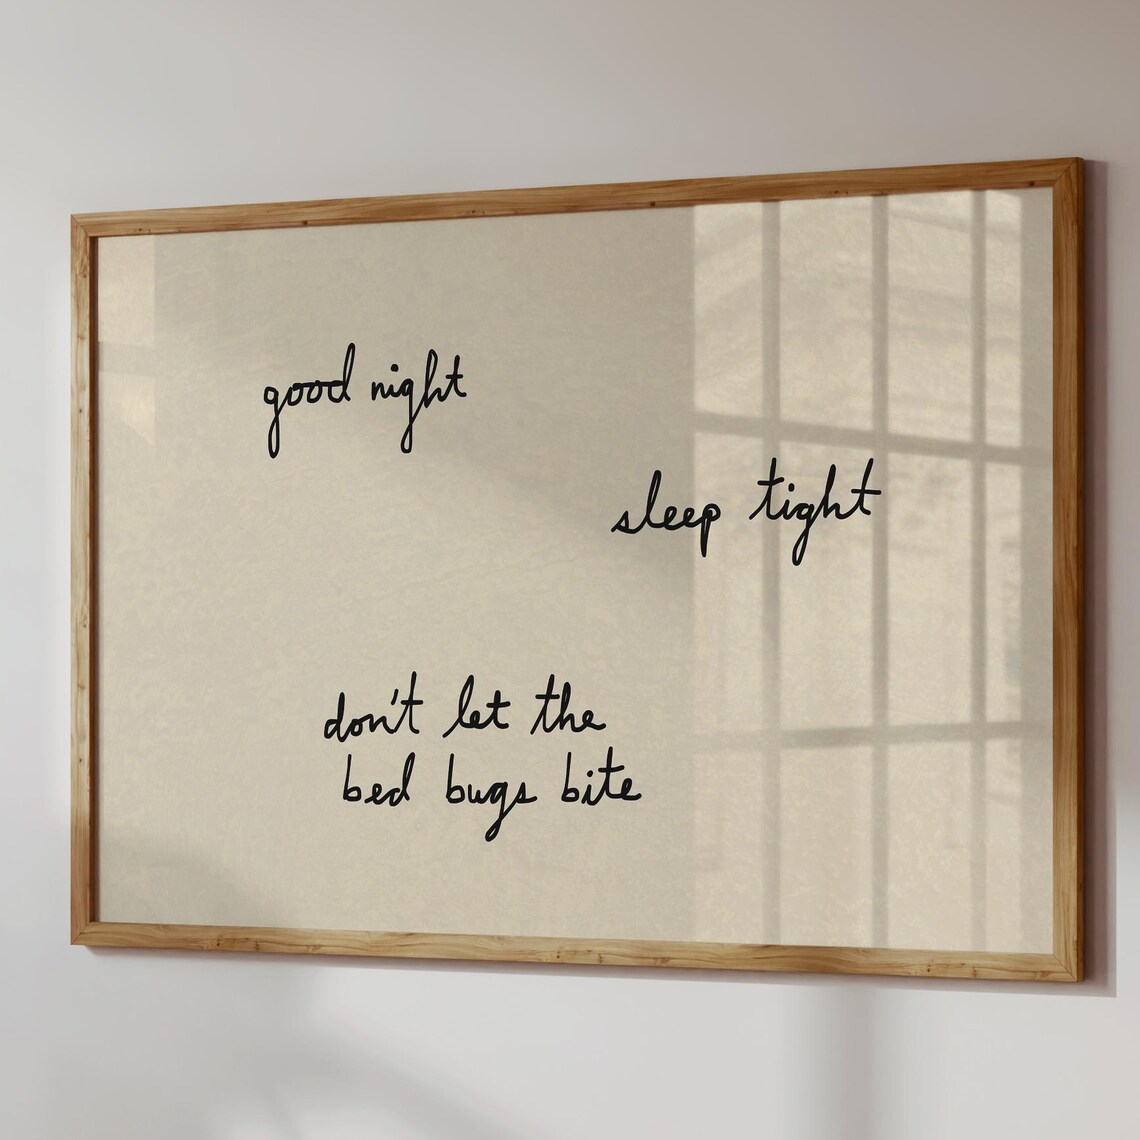 good night
sleep tight
don't let the
bed bugs bite